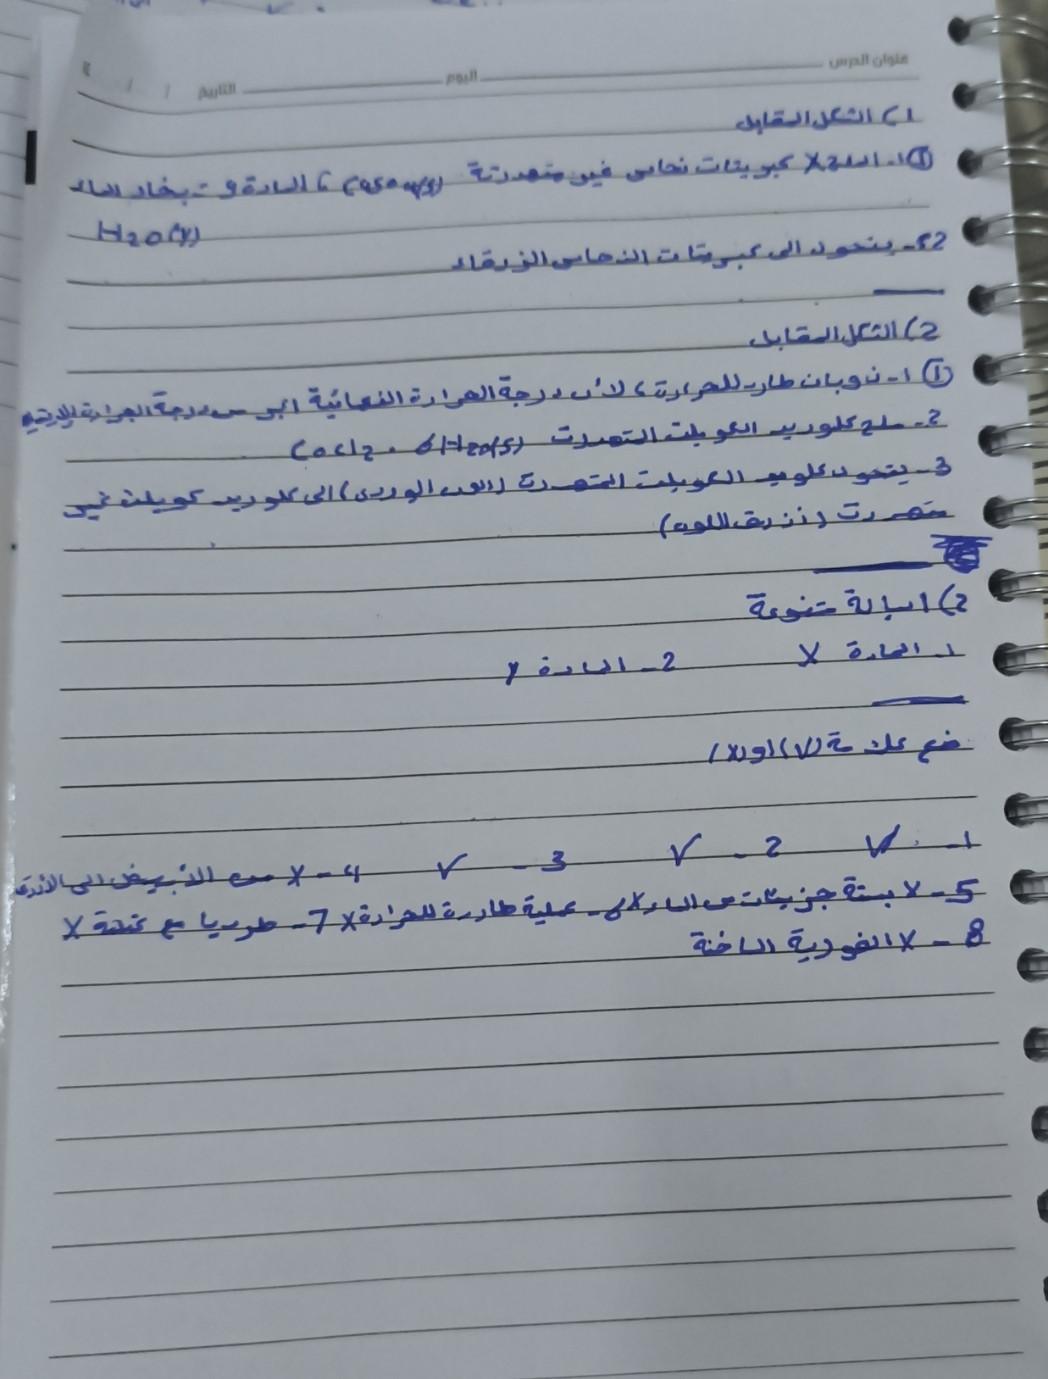 عنوان الدرس اليوم التاريخ / /
1) الشكل المقابل
① 1- المادة X كبريتات نحاس غير متهدرتة CuSO4(s) ، المادة y - بخار الماء
H2O(v)
2- يتحول الى كبريتات النحاس الزرقاء
2) الشكل المقابل
① 1- ذوبان طارد للحرارة ، لأن درجة الحرارة النهائية اكبر من درجة الحرارة
2- ملح كلوريد الكوبلت المتهدرت CoCl2 . 6H2O(s)
3- يتحول كلوريد الكوبلت المتهدرت (اللون الوردي) الى كلوريد كوبلت غير
متهدرت (ازرق اللون)
2) اسالة متنوعة
1- المادة X 2- المادة y
ضع علامة (√) او (X)
1- √ 2- √ 3- √ 4- X من الأبيض الى الأزرق
5- X بستة جزيئات من الماء 6- X عملية طاردة للحرارة 7- X طرديا مع كتلة
8- X الفورية الساخنة